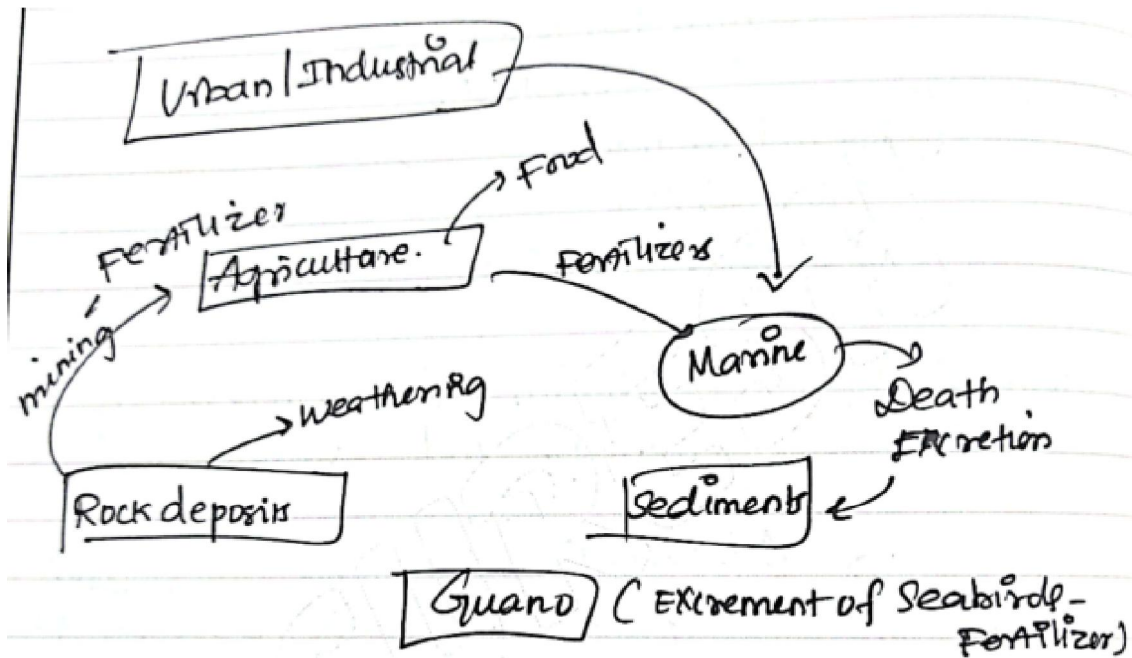 Urban/Industrial
Food
Fertilizer
Agriculture.
Fertilizers
mining
Marine
Weathering
Death
Excretion
Rock deposits
Sediments
Guano (Excrement of Seabirds-
Fertilizer)